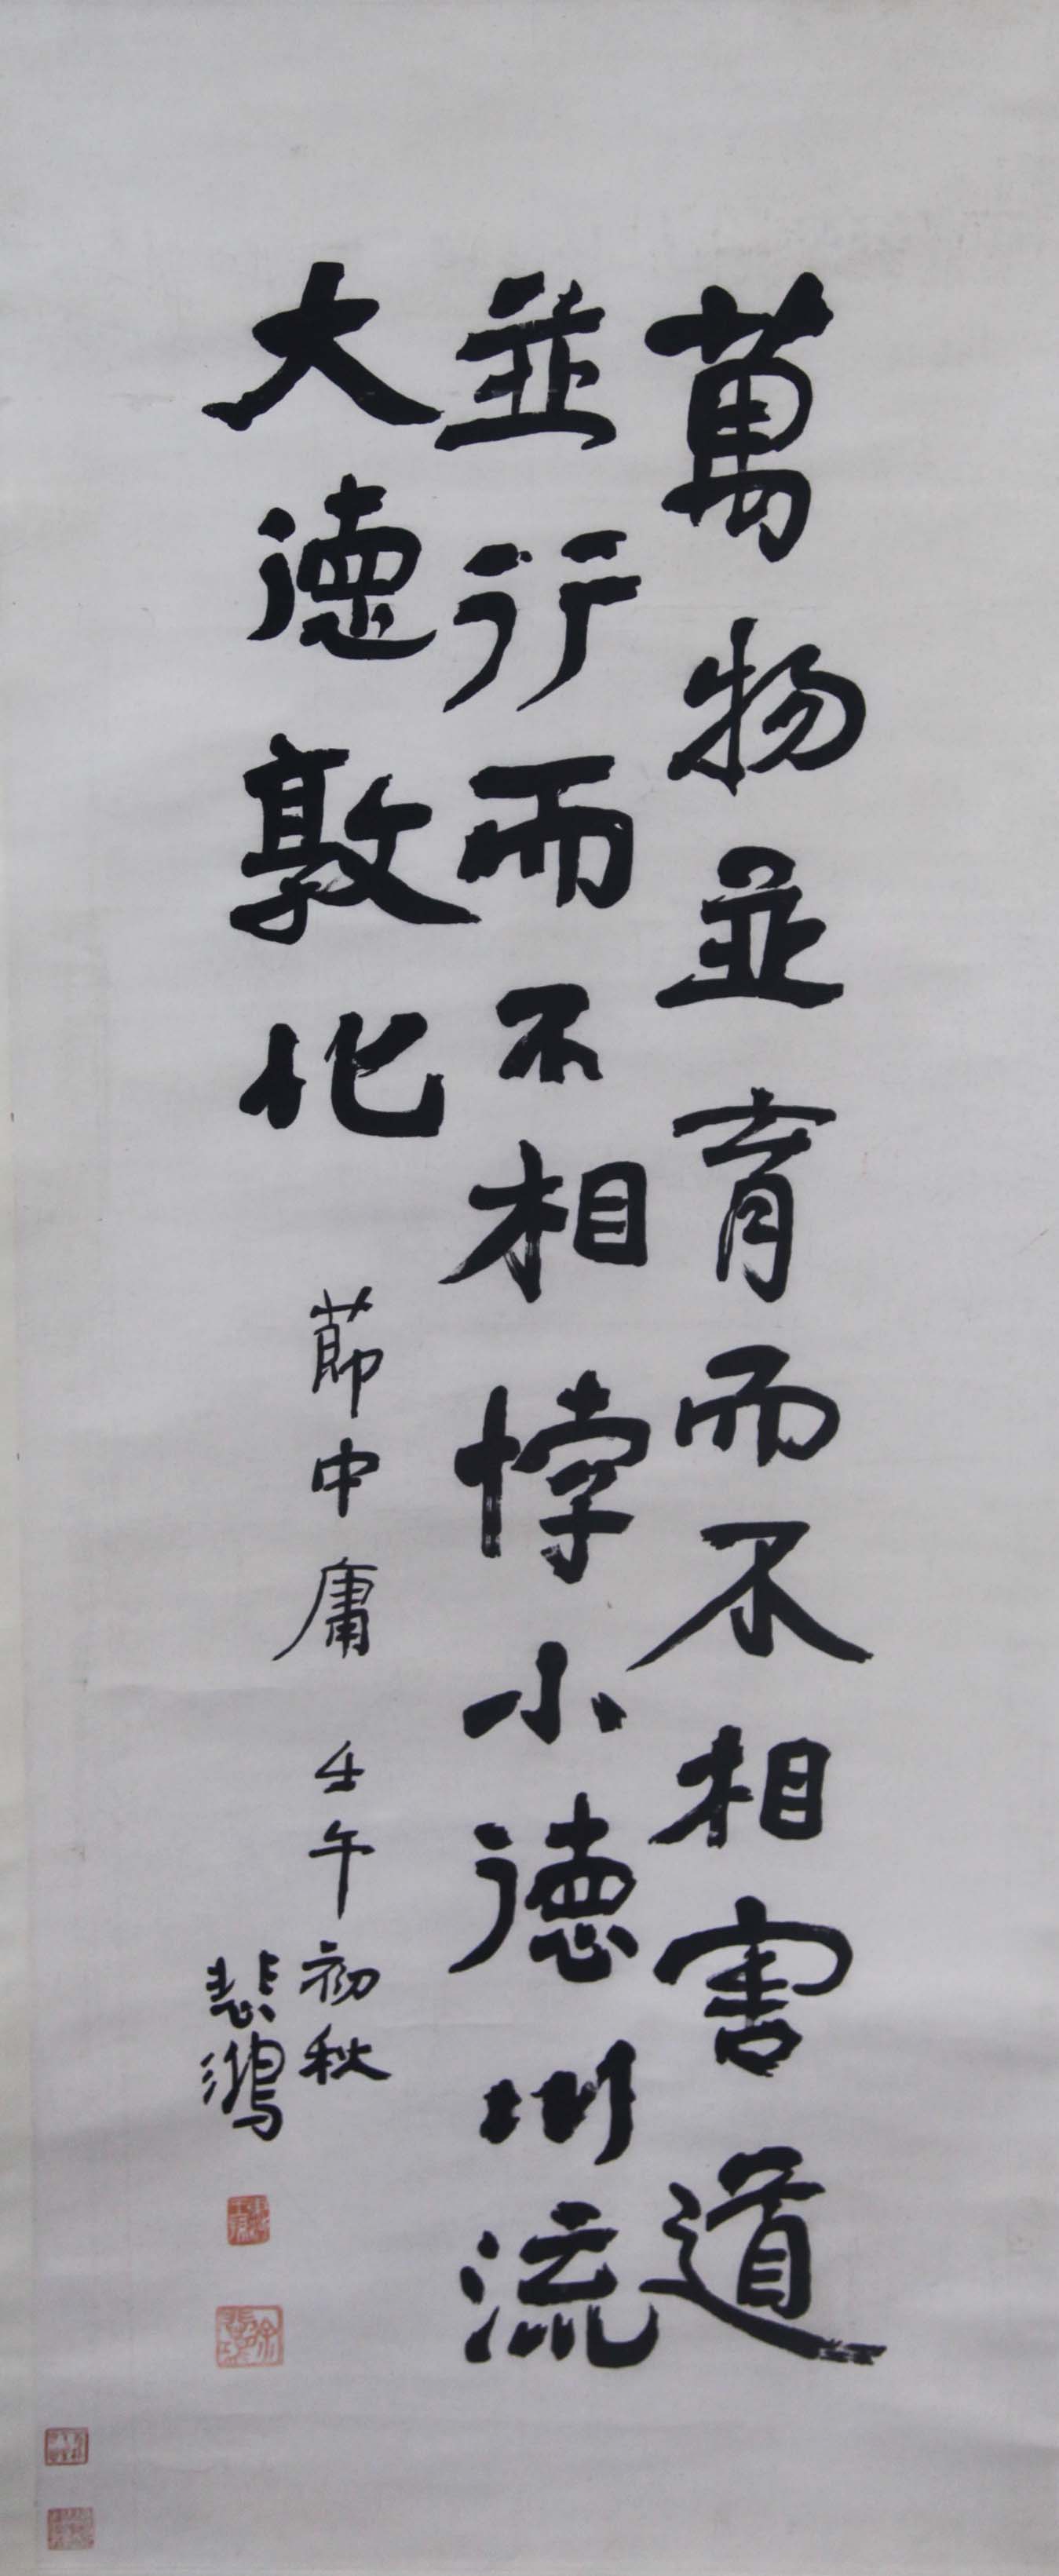 萬物並育而不相害道
並行而不相悖小德川流
大德敦化
節中庸 壬午初秋
悲鴻